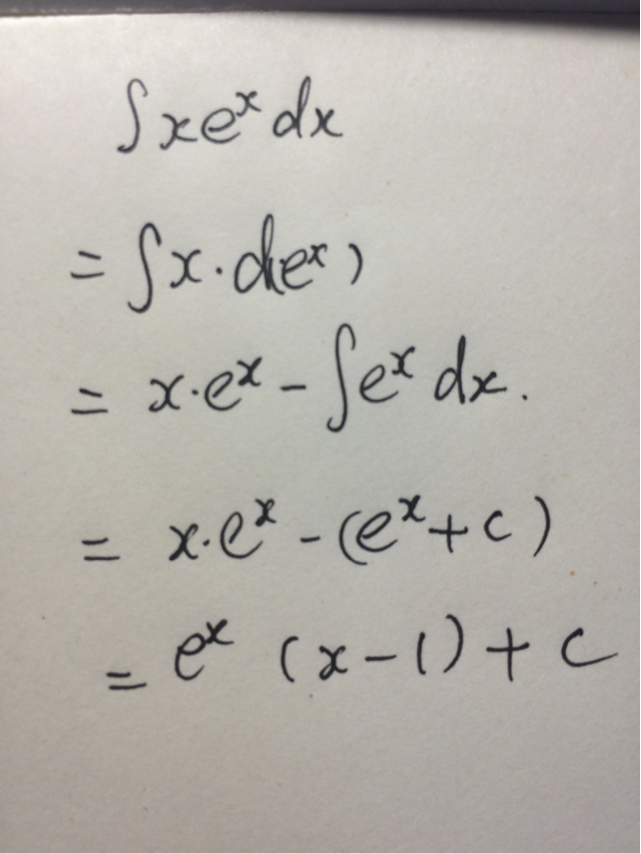 ∫xeˣdx
= ∫x·d(eˣ)
= x·eˣ - ∫eˣdx.
= x·eˣ - (eˣ+c)
= eˣ (x-1)+c